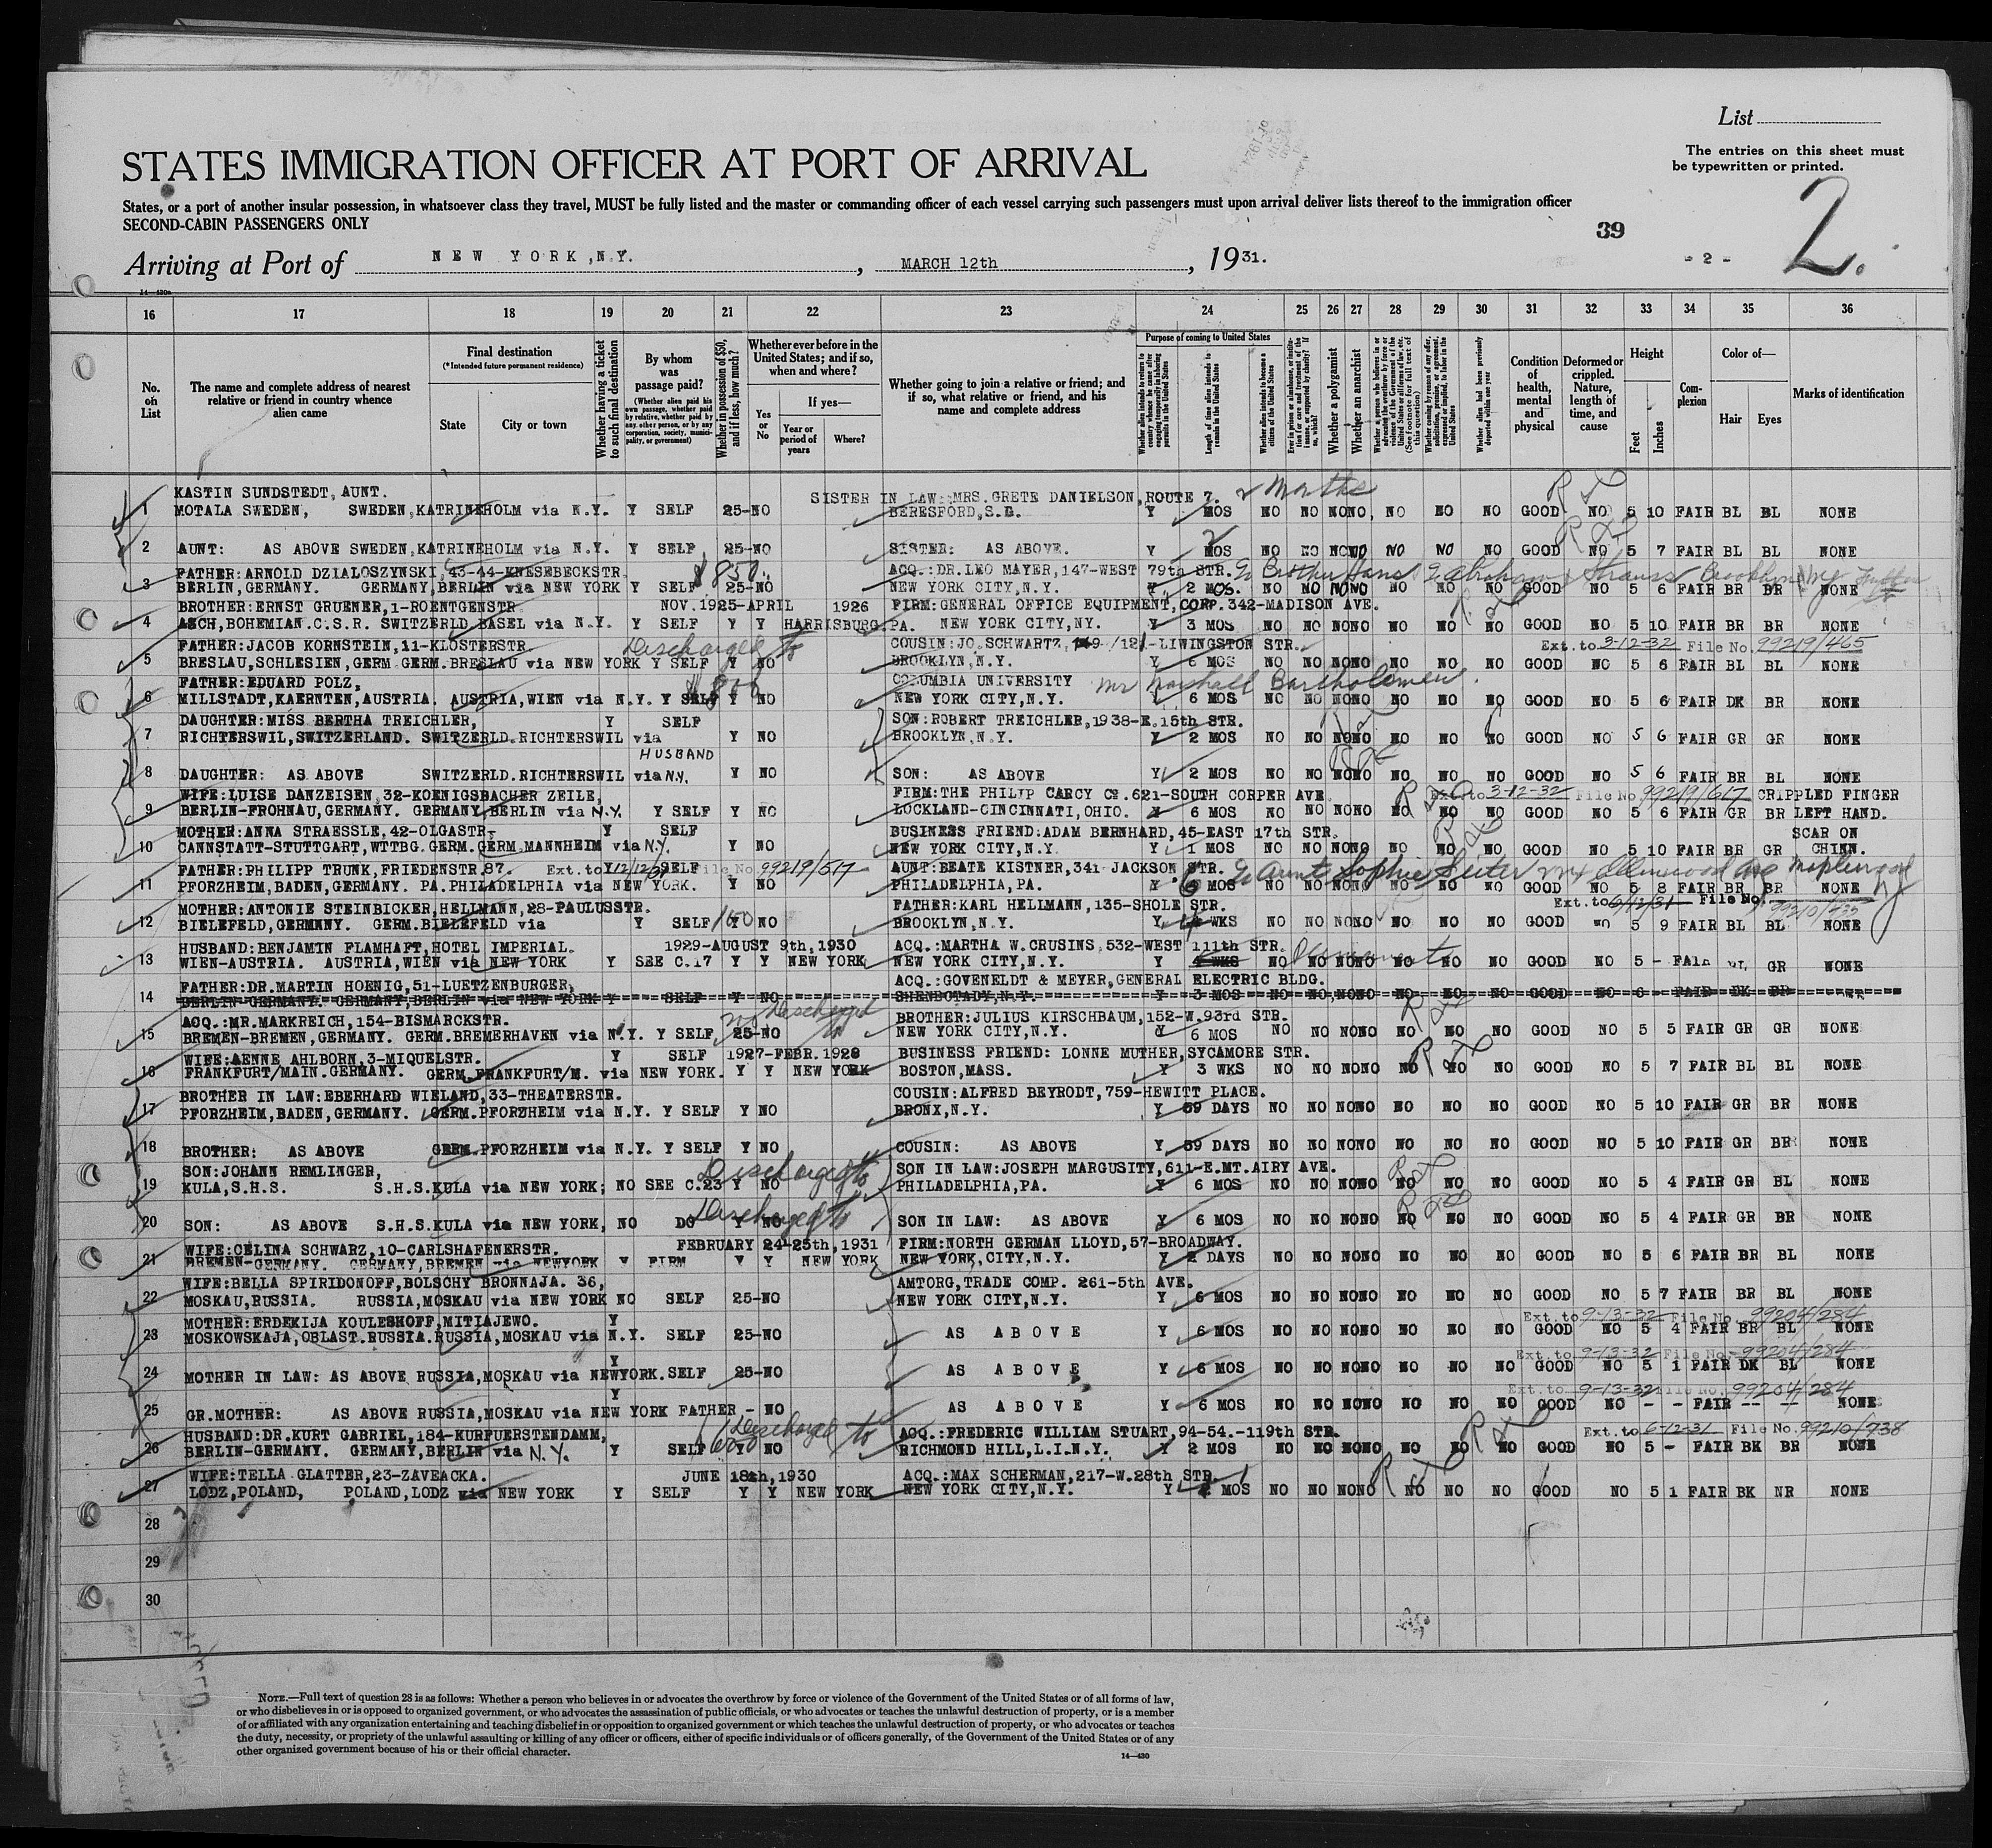 List
The entries on this sheet must
be typewritten or printed.
STATES IMMIGRATION OFFICER AT PORT OF ARRIVAL
States, or a port of another insular possession, in whatsoever class they travel, MUST be fully listed and the master or commanding officer of each vessel carrying such passengers must upon arrival deliver lists thereof to the immigration officer
SECOND-CABIN PASSENGERS ONLY
39
2.
Arriving at Port of NEW YORK, N.Y., MARCH 12th, 1931.
- 2 -
16 17 18 19 20 21 22 23 24 25 26 27 28 29 30 31 32 33 34 35 36
No. on List
The name and complete address of nearest relative or friend in country whence alien came
Final destination
(*Intended future permanent residence)
State City or town
Whether having a ticket to such final destination
By whom was passage paid?
(Whether alien paid his own passage, whether paid by relative, whether paid by any other person, or by any corporation, society, municipality, or government)
Whether in possession of $50, and if less, how much?
Whether ever before in the United States; and if so, when and where?
Yes or No
If yes—
Year or period of years Where?
Whether going to join a relative or friend; and if so, what relative or friend, and his name and complete address
Purpose of coming to United States
Length of time alien intends to remain in the United States
Whether alien intends to become a citizen of the United States
Whether a polygamist
Whether an anarchist
Condition of health, mental and physical
Deformed or crippled. Nature, length of time, and cause
Height
Feet Inches
Complexion
Color of—
Hair Eyes
Marks of identification
KASTIN SUNDSTEDT, AUNT. SISTER IN LAW: MRS. GRETE DANIELSON, ROUTE 7.
1 MOTALA SWEDEN, SWEDEN, KATRINEHOLM via N.Y. Y SELF 25-NO BERESFORD, S.D. Y MOS NO NO NONO, NO NO NO GOOD NO 5 10 FAIR BL BL NONE
2 AUNT: AS ABOVE SWEDEN, KATRINEHOLM via N.Y. Y SELF 25-NO SISTER: AS ABOVE. Y 2 MOS NO NO NONO NO NO NO GOOD NO 5 7 FAIR BL BL NONE
FATHER: ARNOLD DZIALOSZYNSKI, 43-44-KNESEBECKSTR. $850 ACQ.: DR. LEO MAYER, 147-WEST 79th STR. Brother Hans
3 BERLIN, GERMANY. GERMANY, BERLIN via NEW YORK Y SELF 25-NO NEW YORK CITY, N.Y. Y 2 MOS. NO NO NONO NO NO NO GOOD NO 5 6 FAIR BR BR NONE
BROTHER: ERNST GRUENER, 1-ROENTGENSTR NOV. 1925-APRIL 1926 FIRM: GENERAL OFFICE EQUIPMENT, CORP. 342-MADISON AVE.
4 ASCH, BOHEMIAN. C.S.R. SWITZERLD. BASEL via N.Y. Y SELF Y Y HARRISBURG, PA. NEW YORK CITY, NY. Y 3 MOS NO NO NONO NO NO NO GOOD NO 5 10 FAIR BR BR NONE
FATHER: JACOB KORNSTEIN, 11-KLOSTERSTR. Discharged to COUSIN: JO. SCHWARTZ, /121-LIWINGSTON STR. Ext. to 3-12-32 File No. 99219/465
5 BRESLAU, SCHLESIEN, GERM. GERM. BRESLAU via NEW YORK Y SELF Y NO BROOKLYN, N.Y. Y 6 MOS NO NO NONO NO NO NO GOOD NO 5 6 FAIR BL BL NONE
FATHER: EDUARD POLZ, COLUMBIA UNIVERSITY Mr Marshall Bartholomew.
6 MILLSTADT, KAERNTEN, AUSTRIA. AUSTRIA, WIEN via N.Y. Y SELF Y NO NEW YORK CITY, N.Y. Y 6 MOS NO NO NONO NO NO NO GOOD NO 5 6 FAIR DK BR NONE
DAUGHTER: MISS BERTHA TREICHLER, Y SELF SON: ROBERT TREICHLER, 1938-E. 15th STR.
7 RICHTERSWIL, SWITZERLAND. SWITZERLD. RICHTERSWIL via Y NO BROOKLYN, N.Y. Y 2 MOS NO NO NONO NO NO NO GOOD NO 5 6 FAIR GR GR NONE
HUSBAND
8 DAUGHTER: AS ABOVE SWITZERLD. RICHTERSWIL via N.Y. Y NO SON: AS ABOVE Y 2 MOS NO NO NONO NO NO NO GOOD NO 5 6 FAIR BR BL NONE
WIFE: LUISE DANZEISEN, 32-KOENIGSBACHER ZEILE, FIRM: THE PHILIP CARCY Co. 621-SOUTH CORPER AVE. Ext. to 3-12-32 File No. 99219/617 CRIPPLED FINGER
9 BERLIN-FROHNAU, GERMANY. GERMANY, BERLIN via N.Y. Y SELF Y NO LOCKLAND-CINCINNATI, OHIO. Y 6 MOS NO NO NONO NO NO NO GOOD NO 5 6 FAIR GR BR LEFT HAND.
MOTHER: ANNA STRAESSLE, 42-OLGASTR. Y SELF BUSINESS FRIEND: ADAM BERNHARD, 45-EAST 17th STR. SCAR ON
10 CANNSTATT-STUTTGART, WTTBG. GERM. GERM. MANNHEIM via N.Y. Y NO NEW YORK CITY, N.Y. Y 1 MOS NO NO NONO NO NO NO GOOD NO 5 10 FAIR BR GR CHINN.
FATHER: PHILIPP TRUNK, FRIEDENSTR. 87. Ext. to 12/12/31 SELF File No. 99219/517 AUNT: BEATE KISTNER, 341 JACKSON STR. Aunt Sophie
11 PFORZHEIM, BADEN, GERMANY. PA. PHILADELPHIA via NEW YORK. Y NO PHILADELPHIA, PA. Y 6 MOS NO NO NONO NO NO NO GOOD NO 5 8 FAIR BR BR NONE
MOTHER: ANTONIE STEINBICKER, HELLMANN, 28-PAULUSSTR. FATHER: KARL HELLMANN, 135-SHOLE STR. Ext. to 6/12/31 File No.
12 BIELEFELD, GERMANY. GERM. BIELEFELD via Y SELF 150 Y NO BROOKLYN, N.Y. Y WKS NO NO NONO NO NO NO GOOD NO 5 9 FAIR BL BL NONE
HUSBAND: BENJAMIN FLAMHAFT, HOTEL IMPERIAL. 1929-AUGUST 9th, 1930 ACQ.: MARTHA W. CRUSINS, 532-WEST 111th STR. Permanent
13 WIEN-AUSTRIA. AUSTRIA, WIEN via NEW YORK Y SEE C.17 Y Y NEW YORK NEW YORK CITY, N.Y. Y WKS NO NO NONO NO NO NO GOOD NO 5 - FAIR BL GR NONE
FATHER: DR. MARTIN HOENIG, 51-LUETZENBURGER, ACQ.: GOVENELDT & MEYER, GENERAL ELECTRIC BLDG.
14 BERLIN-GERMANY. GERMANY, BERLIN via NEW YORK Y SELF Y NO SHENECTADY, N.Y. Y 3 MOS NO NO NONO NO NO NO GOOD NO 6 - FAIR DK BR
ACQ.: MR. MARKREICH, 154-BISMARCKSTR. Discharged to BROTHER: JULIUS KIRSCHBAUM, 152-W. 93rd STR.
15 BREMEN-BREMEN, GERMANY. GERM. BREMERHAVEN via N.Y. Y SELF 25-NO NEW YORK CITY, N.Y. Y 6 MOS NO NO NONO NO NO NO GOOD NO 5 5 FAIR GR GR NONE
WIFE: AENNE AHLBORN, 3-MIQUELSTR. Y SELF 1927-FEBR. 1928 BUSINESS FRIEND: LONNE MUTHER, SYCAMORE STR.
16 FRANKFURT/MAIN. GERMANY. GERM. FRANKFURT/M. via NEW YORK. Y Y NEW YORK BOSTON, MASS. Y 3 WKS NO NO NONO NO NO NO GOOD NO 5 7 FAIR BL BL NONE
BROTHER IN LAW: EBERHARD WIELAND, 33-THEATERSTR. COUSIN: ALFRED BEYRODT, 759-HEWITT PLACE.
17 PFORZHEIM, BADEN, GERMANY. GERM. PFORZHEIM via N.Y. Y SELF Y NO BRONX, N.Y. Y 59 DAYS NO NO NONO NO NO NO GOOD NO 5 10 FAIR GR BR NONE
18 BROTHER: AS ABOVE GERM. PFORZHEIM via N.Y. Y SELF Y NO COUSIN: AS ABOVE Y 59 DAYS NO NO NONO NO NO NO GOOD NO 5 10 FAIR GR BR NONE
SON: JOHANN REMLINGER, Discharged to SON IN LAW: JOSEPH MARGUSITY, 611-E. MT. AIRY AVE.
19 KULA, S.H.S. S.H.S. KULA via NEW YORK; NO SEE C.23 Y NO PHILADELPHIA, PA. Y 6 MOS NO NO NONO NO NO NO GOOD NO 5 4 FAIR GR BL NONE
Discharged to
20 SON: AS ABOVE S.H.S. KULA via NEW YORK, NO DO Y NO SON IN LAW: AS ABOVE Y 6 MOS NO NO NONO NO NO NO GOOD NO 5 4 FAIR GR BR NONE
WIFE: CELINA SCHWARZ, 10-CARLSHAFENERSTR. FEBRUARY 24-25th, 1931 FIRM: NORTH GERMAN LLOYD, 57-BROADWAY.
21 BREMEN-GERMANY. GERMANY, BREMEN via NEWYORK Y FIRM Y Y NEW YORK NEW YORK, CITY, N.Y. Y 2 DAYS NO NO NONO NO NO NO GOOD NO 5 6 FAIR BR BL NONE
WIFE: BELLA SPIRIDONOFF, BOLSCHY BRONNAJA. 36, AMTORG, TRADE COMP. 261-5th AVE.
22 MOSKAU, RUSSIA. RUSSIA, MOSKAU via NEW YORK NO SELF 25-NO NEW YORK CITY, N.Y. Y 6 MOS NO NO NONO NO NO NO GOOD NO 5 7 FAIR BR BL NONE
MOTHER: ERDEKIJA KOULESHOFF, MITIAJEWO. Y Ext. to 9-13-32 File No. 99204/284
23 MOSKOWSKAJA, OBLAST. RUSSIA. RUSSIA, MOSKAU via N.Y. SELF 25-NO AS ABOVE Y 6 MOS NO NO NONO NO NO NO GOOD NO 5 4 FAIR BR BL NONE
Y Ext. to 9-13-32 File No. 99204/284
24 MOTHER IN LAW: AS ABOVE RUSSIA, MOSKAU via NEWYORK. SELF 25-NO AS ABOVE Y 6 MOS NO NO NONO NO NO NO GOOD NO 5 1 FAIR DK BL NONE
Y Ext. to 9-13-32 File No. 99204/284
25 GR. MOTHER: AS ABOVE RUSSIA, MOSKAU via NEW YORK FATHER - NO AS ABOVE Y 6 MOS NO NO NONO NO NO NO GOOD NO - - FAIR -- -- NONE
HUSBAND: DR. KURT GABRIEL, 184-KURFUERSTENDAMM, Discharged to ACQ.: FREDERIC WILLIAM STUART, 94-54.-119th STR. Ext. to 6-12-31 File No. 99210/738
26 BERLIN-GERMANY. GERMANY, BERLIN via N.Y. Y SELF Y NO RICHMOND HILL, L.I.N.Y. Y 2 MOS NO NO NONO NO NO NO GOOD NO 5 - FAIR BK BR NONE
WIFE: TELLA GLATTER, 23-ZAVEACKA. JUNE 18th, 1930 ACQ.: MAX SCHERMAN, 217-W. 28th STR.
27 LODZ, POLAND, POLAND, LODZ via NEW YORK Y SELF Y Y NEW YORK NEW YORK CITY, N.Y. Y MOS NO NO NONO NO NO NO GOOD NO 5 1 FAIR BK NR NONE
28
29
30
NOTE.—Full text of question 28 is as follows: Whether a person who believes in or advocates the overthrow by force or violence of the Government of the United States or of all forms of law,
or who disbelieves in or is opposed to organized government, or who advocates the assassination of public officials, or who advocates or teaches the unlawful destruction of property, or is a member
of or affiliated with any organization entertaining and teaching disbelief in or opposition to organized government or which teaches the unlawful destruction of property, or who advocates or teaches
the duty, necessity, or propriety of the unlawful assaulting or killing of any officer or officers, either of specific individuals or of officers generally, of the Government of the United States or of any
other organized government because of his or their official character.
14—430